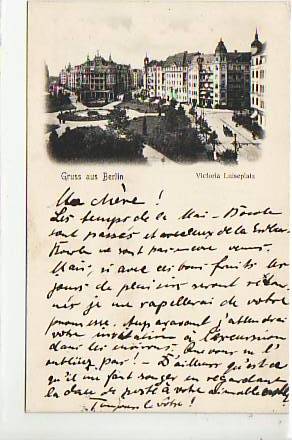 Gruss aus Berlin
Victoria Luiseplatz
Ma chère !
Les temps de la Mai-Bowle
sont passés et ceux de la
Bowle ne sont pas encore venus.
Mais, si avec les bons fruits les
jours de plaisir seront
je me rappellerai de votre
promesse. Auparavant j'attendrai
votre invitation à l'excursion
dans les environs. Que vous ne l'
oubliez pas ! – D'ailleurs qu'est-ce
qu'il me fait songer en regardant
la date de poste à votre aimable
Toujours le vôtre !